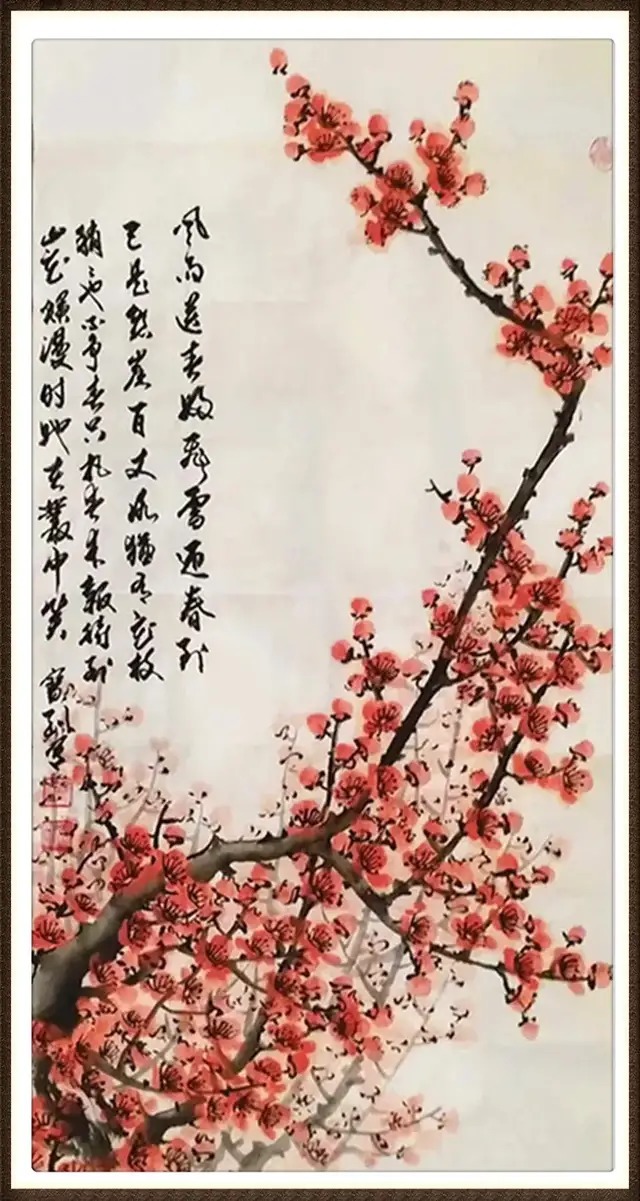 风雨送春歸飛雪迎春到
已是悬崖百丈冰猶有花枝
俏〻也不争春只把春来報待到
山花爛漫时她在叢中笑